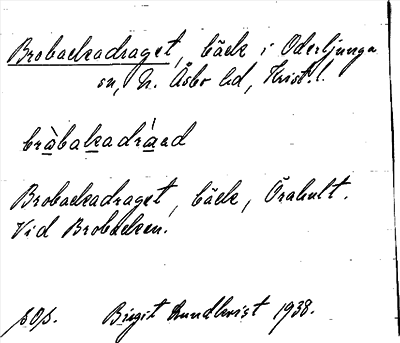 Brobackadraget, bäck i Oderljunga
sn, N. Åsbo hd, Krist.l.
bràbakadràed
Brobackadraget, bäck, Örahult.
Vid Brobacken.
sop. Birgit Lundkvist 1938.